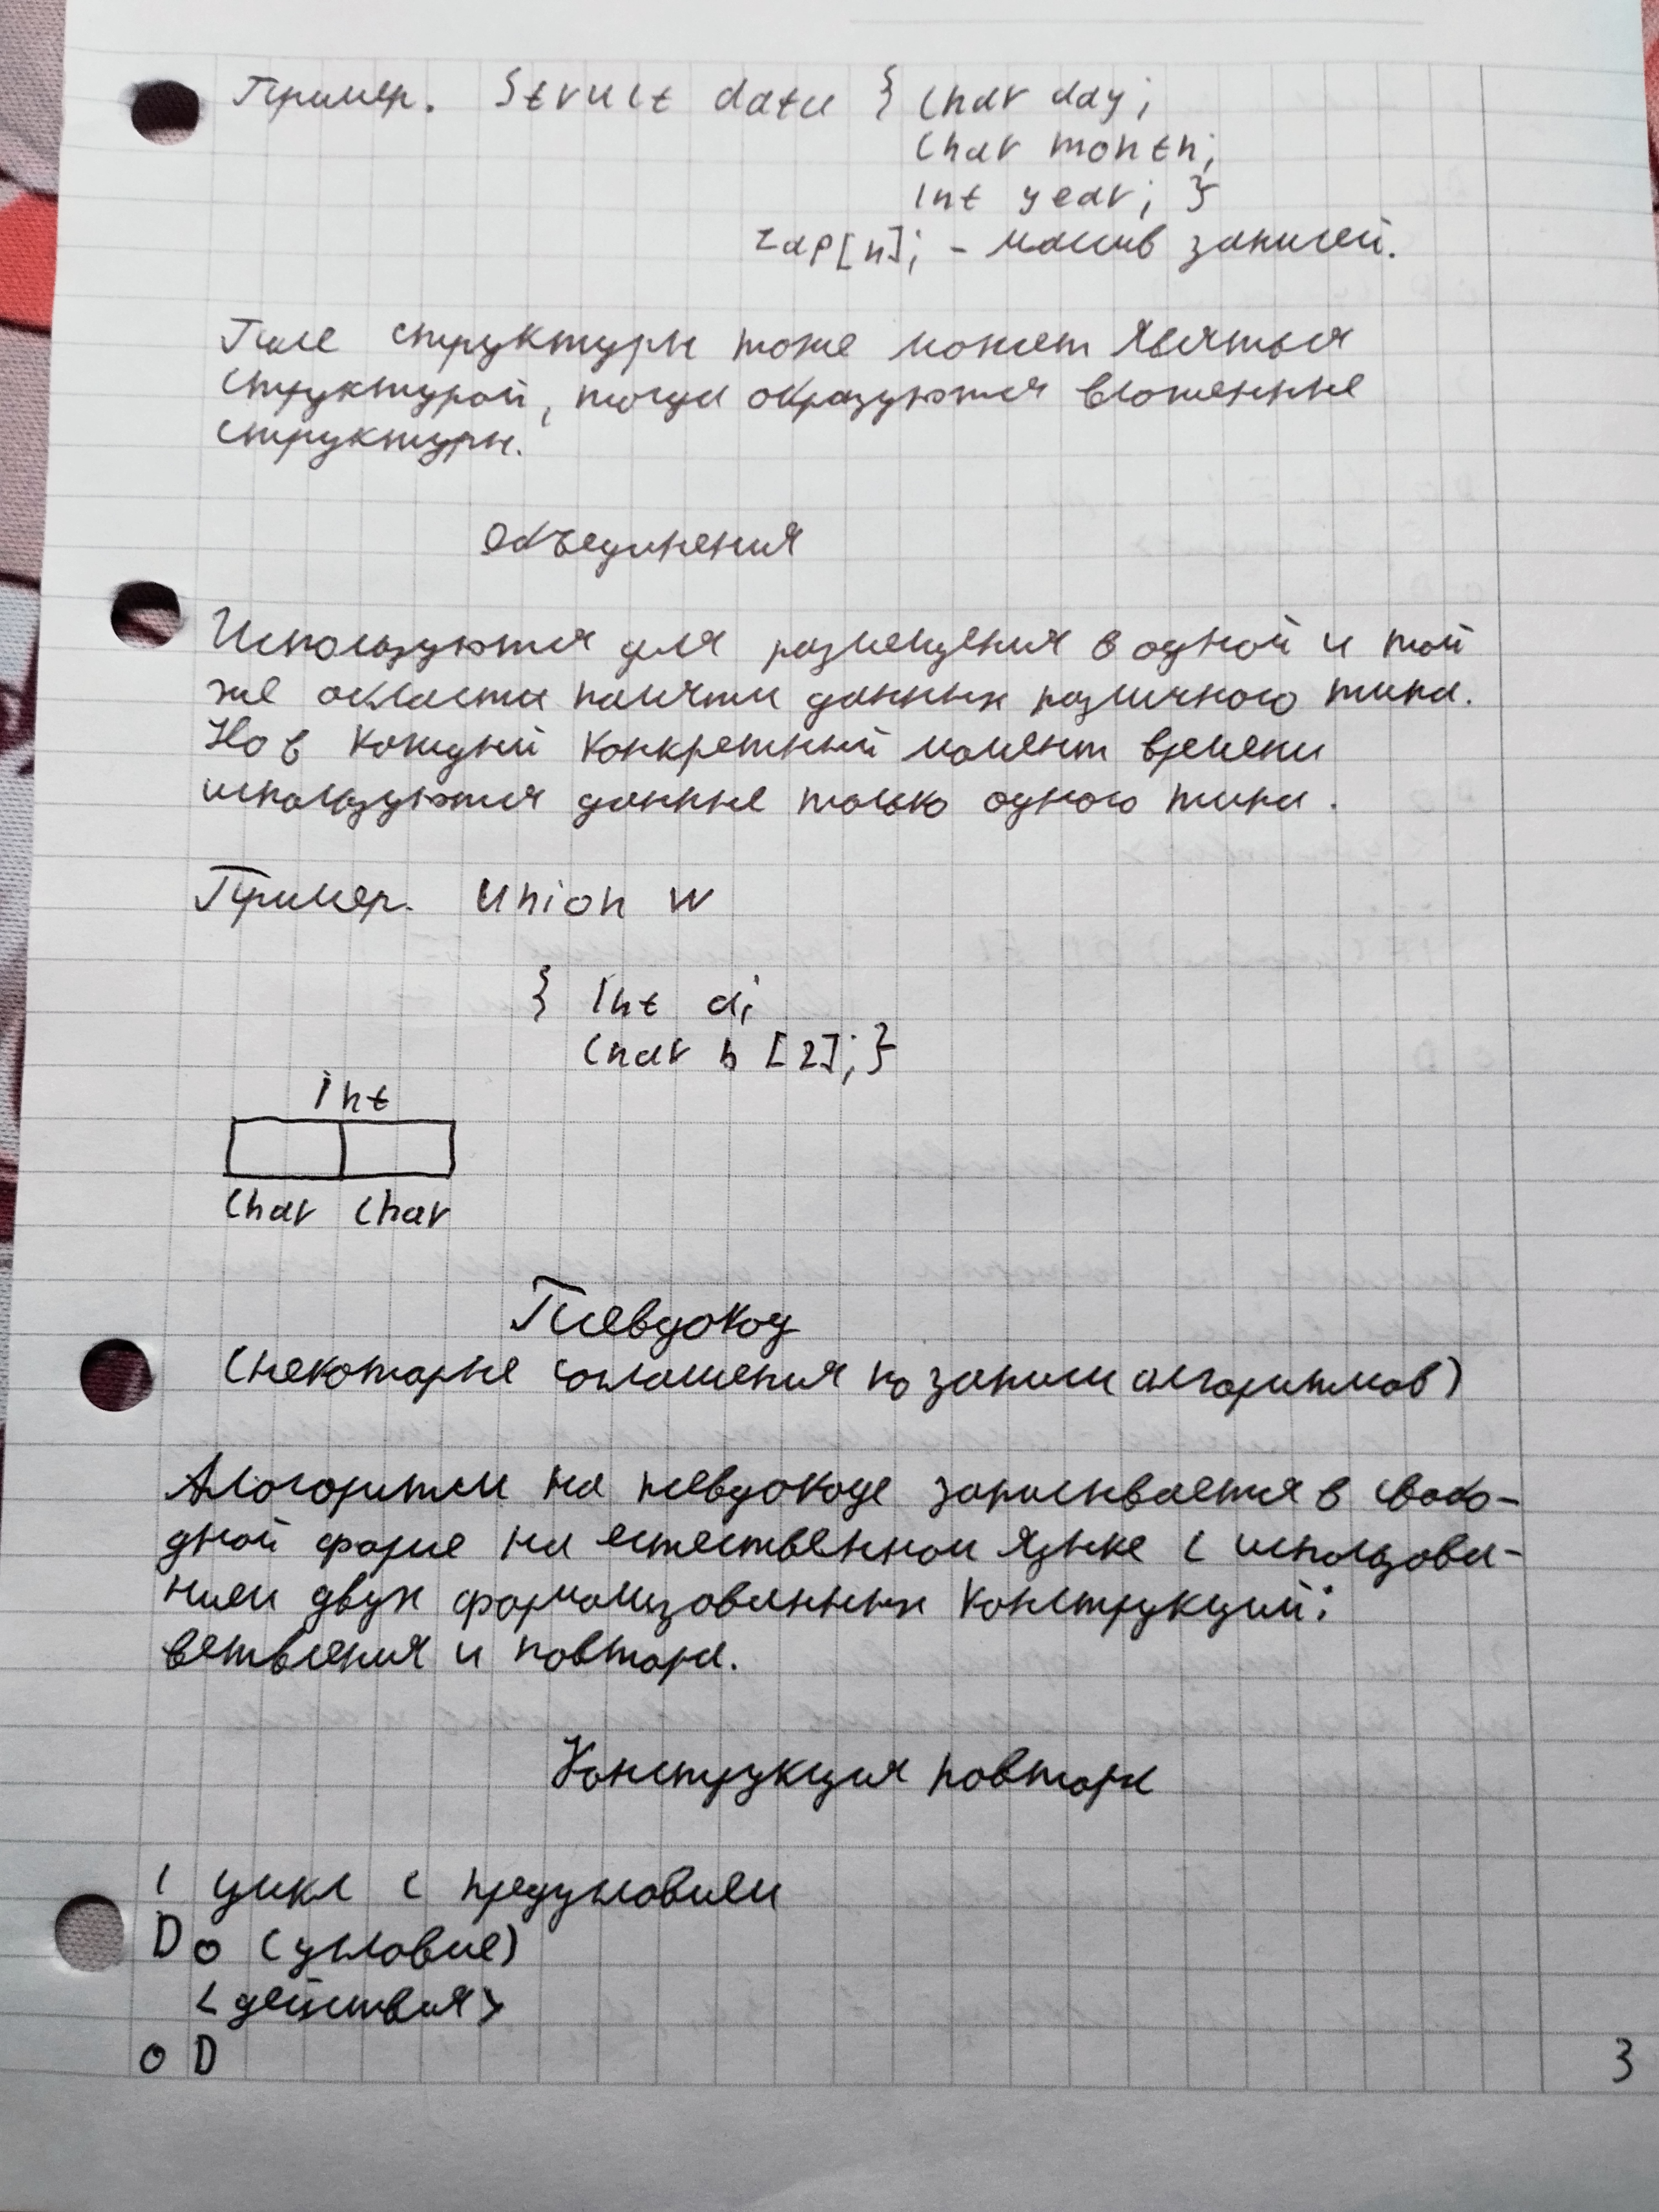 Пример. Struct data { char day;
char month;
int year; }
zap[n]; - массив записей.
Поле структуры тоже может являться
структурой, тогда образуются вложенные
структуры.
Объединения
Используются для размещения в одной и той
же области памяти данных различного типа.
Но в каждый конкретный момент времени
используются данные только одного типа.
Пример. Union W
{ int a;
char b [2]; }
int
char char
Псевдокод
(некоторые соглашения по записи алгоритмов)
Алгоритм на псевдокоде записывается в свобо-
дной форме на естественном языке с использова-
нием двух формализованных конструкций:
ветвления и повтора.
Конструкция повтора
1 цикл с предусловием
Do (условие)
<действия>
oD
3